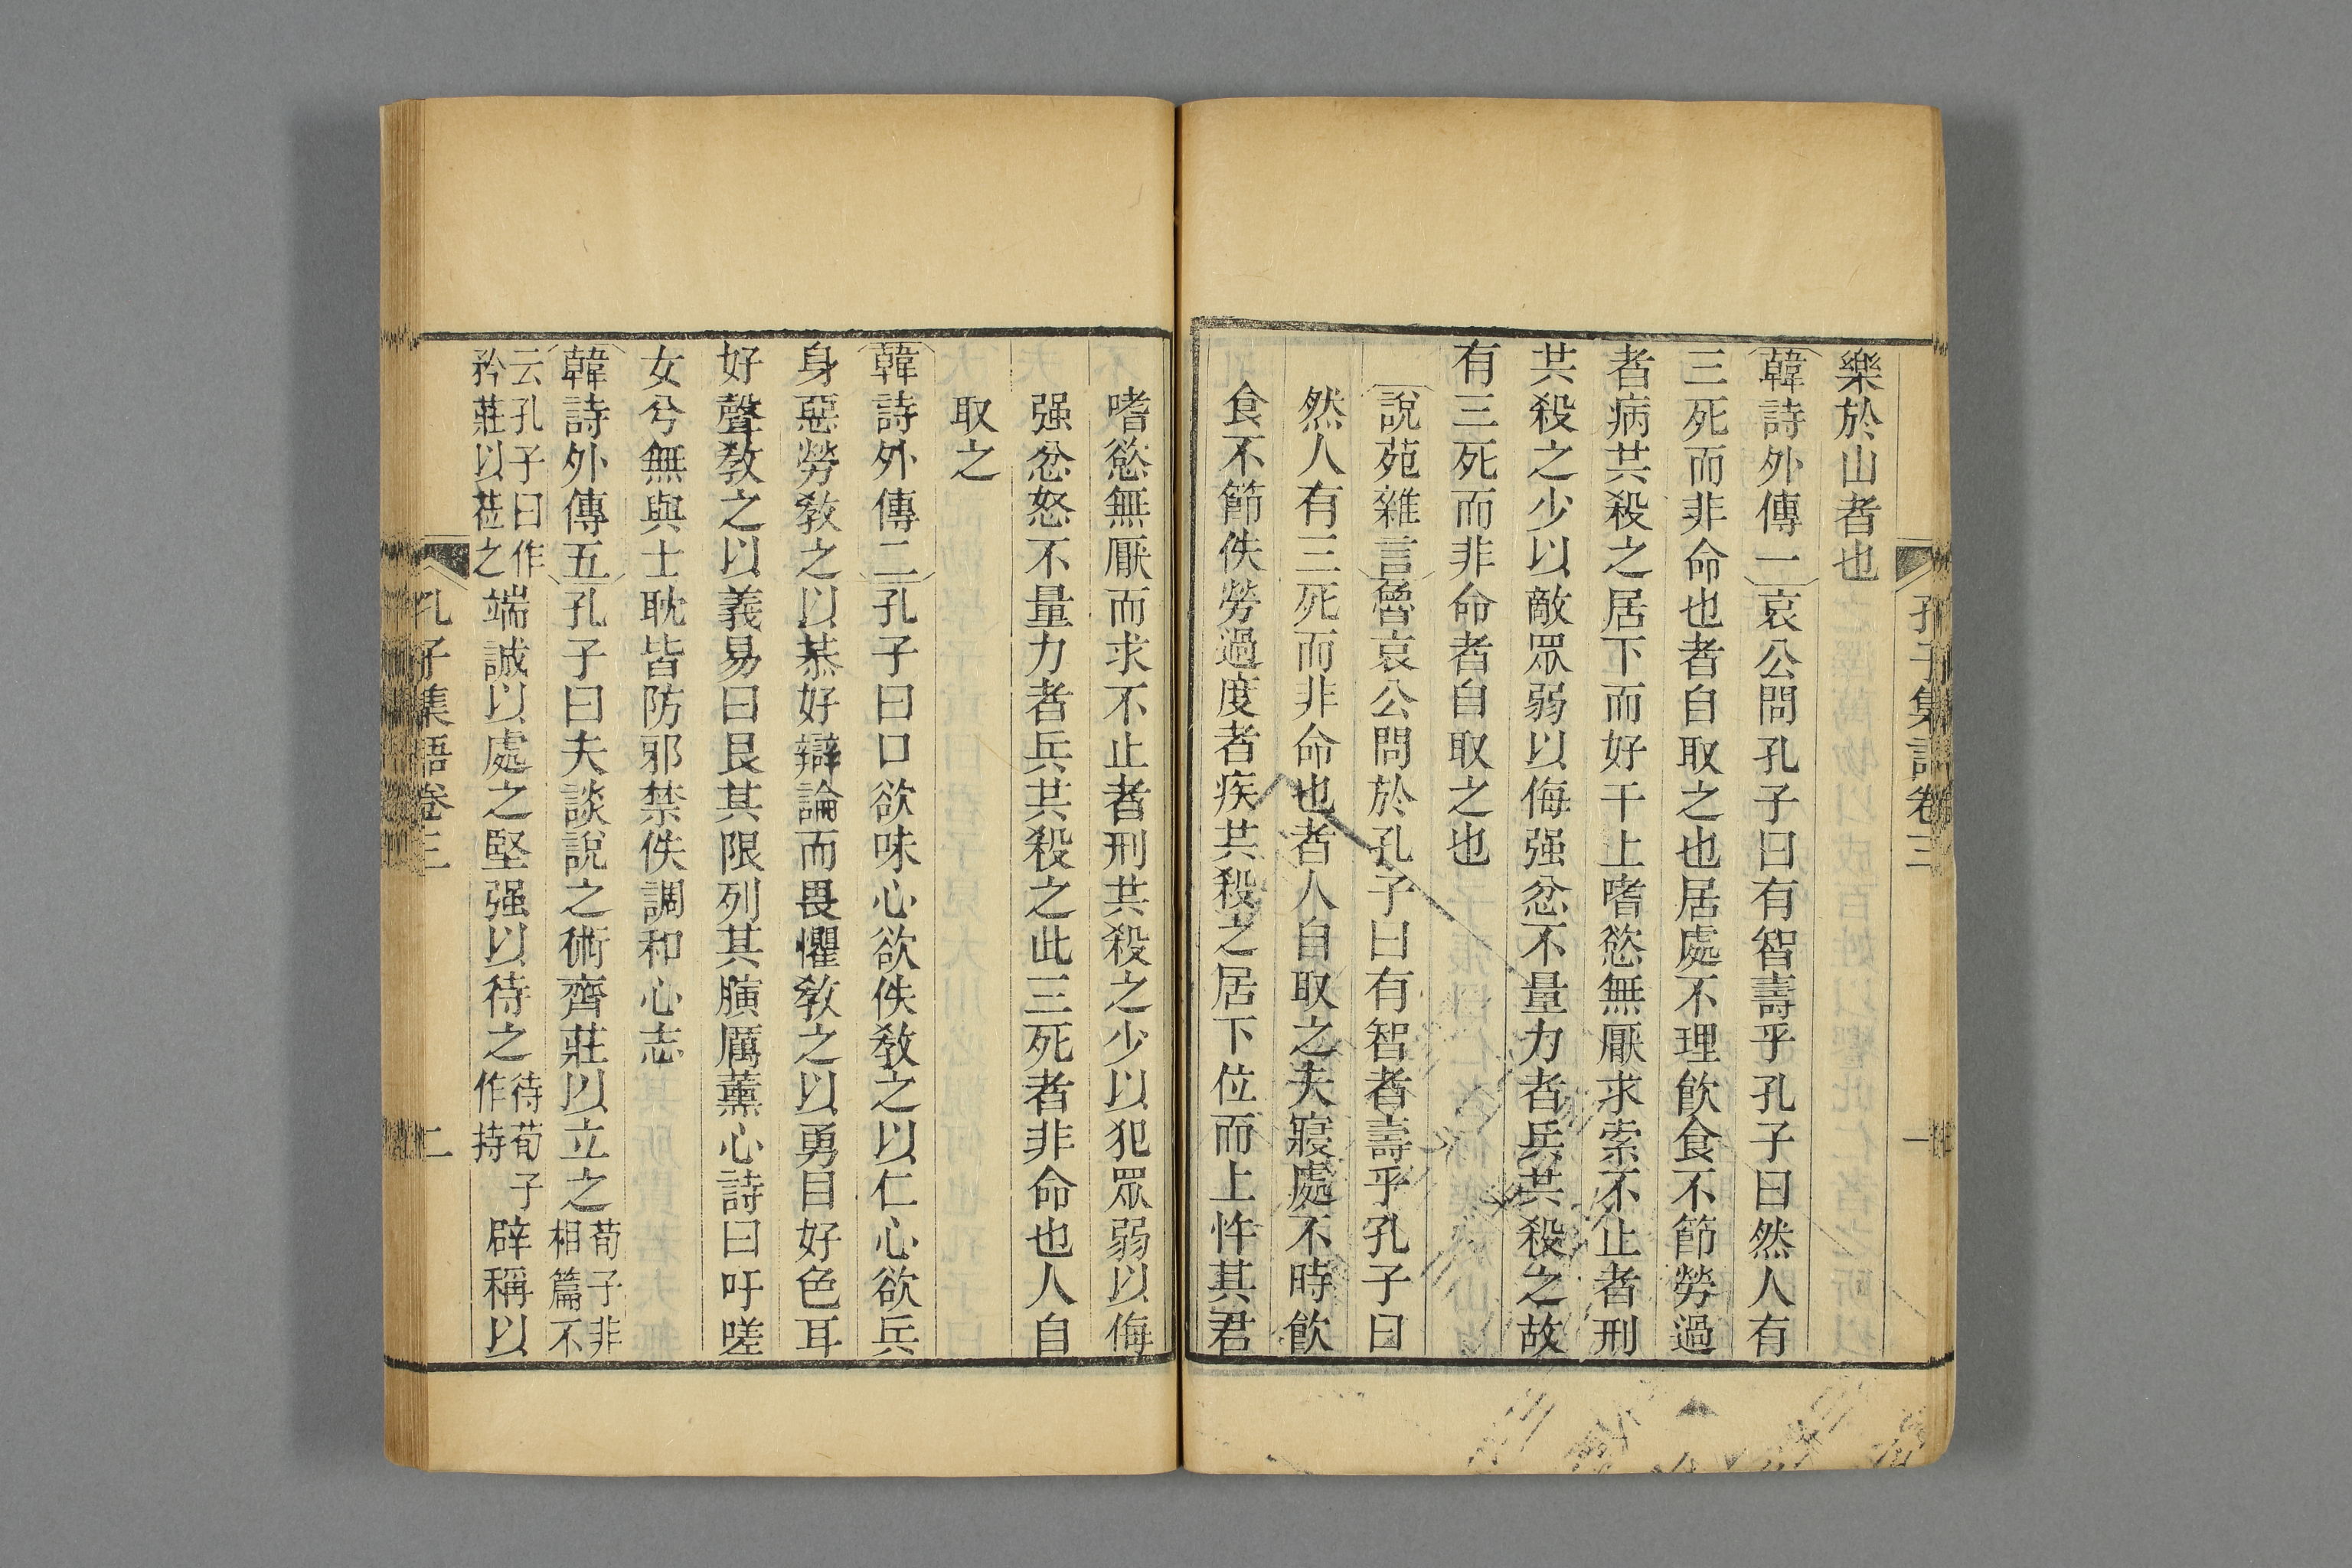 孔子集語卷三
一
樂於山者也
韓詩外傳一哀公問孔子曰有智壽乎孔子曰然人有
三死而非命也者自取之也居處不理飲食不節勞過
者病共殺之居下而好干上嗜慾無厭求索不止者刑
共殺之少以敵眾弱以侮强忿不量力者兵共殺之故
有三死而非命者自取之也
說苑雜言魯哀公問於孔子曰有智者壽乎孔子曰
然人有三死而非命也者人自取之夫寢處不時飲
食不節佚勞過度者疾共殺之居下位而上忤其君
嗜慾無厭而求不止者刑共殺之少以犯眾弱以侮
强忿怒不量力者兵共殺之此三死者非命也人自
取之
韓詩外傳二孔子曰口欲味心欲佚敎之以仁心欲兵
身惡勞敎之以恭好辯論而畏懼敎之以勇目好色耳
好聲敎之以義易曰艮其限列其䏖厲薰心詩曰吁嗟
女兮無與士耽皆防邪禁佚調和心志
韓詩外傳五孔子曰夫談說之術齊莊以立之荀子非相篇不
云孔子曰作矜莊以莅之端誠以處之堅强以待之待荀子作持辟稱以
孔子集語卷三
二